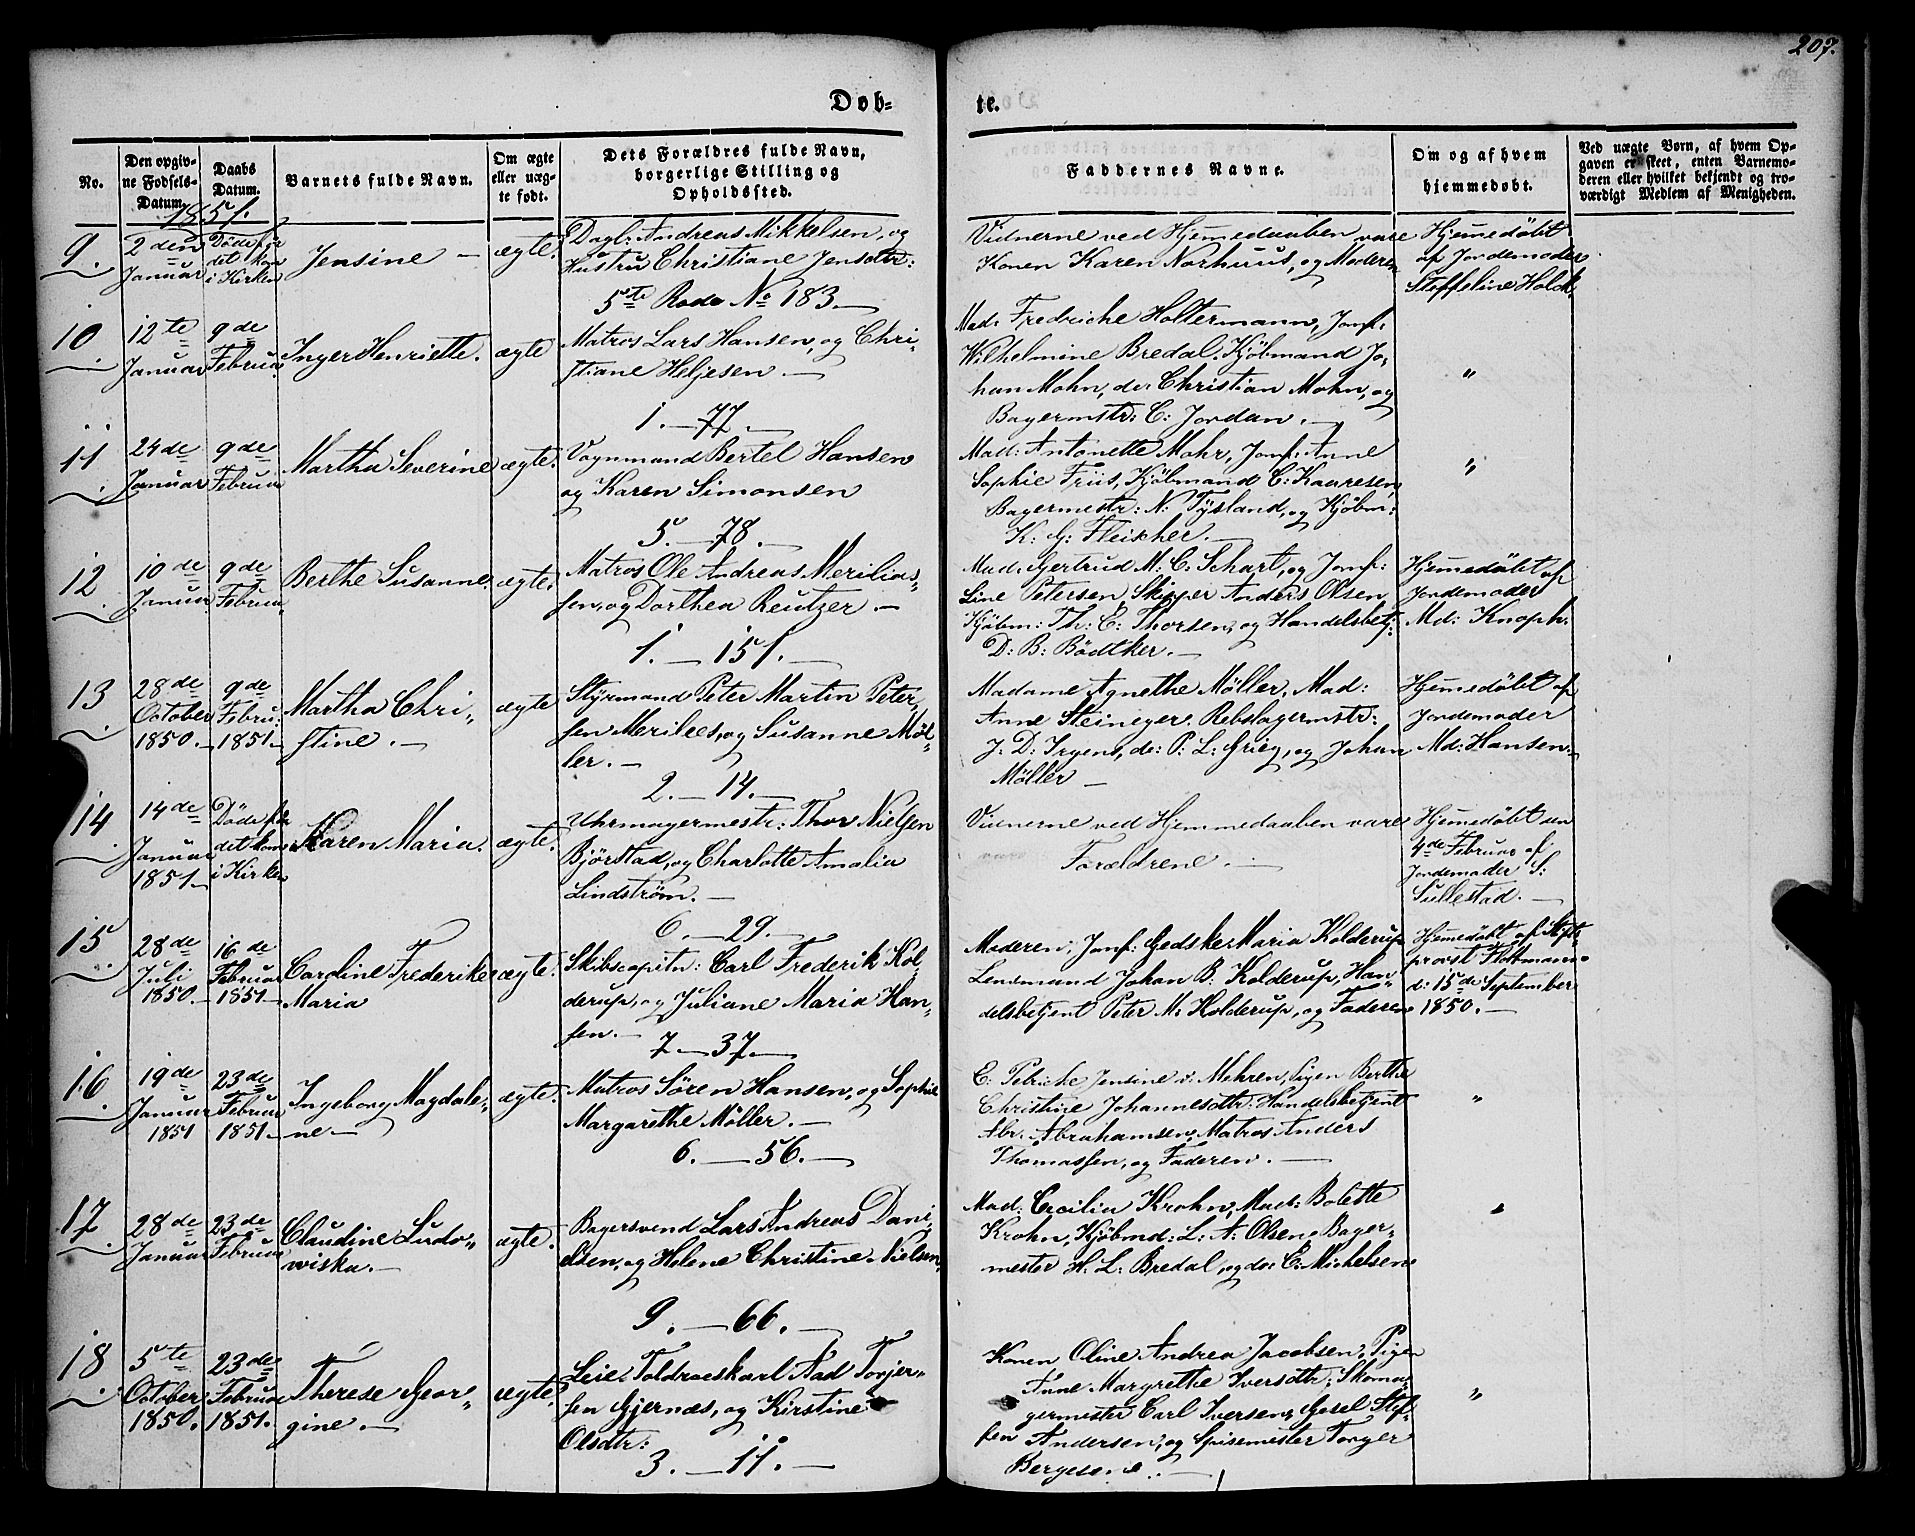 207.
Døb-
te.
No.
Den opgiv-
ne Fødsels-
Datum.
Daabs
Datum.
Barnets fulde Navn.
Om ægte
eller uæg-
te født.
Dets Forældres fulde Navn,
borgerlige Stilling og
Opholdssted.
Faddernes Navne.
Om og af hvem
hjemmedøbt.
Ved uægte Børn, af hvem Op-
gaven er skeet, enten Barnemo-
deren eller hvilket bekjendt og tro-
værdigt Medlem af Menigheden.
1851.
9.
2den
Januar
Døde før
det kom
i Kirken
Jensine —
ægte.
Dagl: Andreas Mikkelsen, og
Hustru Christiane Jensdtr:
5te Rode No 183.—
Vidnerne ved Hjemmedaaben vare
Konen Karen Norhuus, og Moderen
Hjemedøbt
af Jordemoder
Steffeline Holck.
10
12te
Januar
9de
Februar
Inger Henriette.
ægte
Matros Lars Hansen, og Chri-
stiane Heljesen.—
1.—77.—
Mad: Fredriche Holtermann, Jomf:
Wilhelmine Bredal, Kjøbmand Jo-
han Mohn, do: Christian Mohn, og
Bagermstr: C: Jordan.—
"
11
24de
Januar
9de
Februar
Martha Severine
ægte.
Vognmand Bertel Hansen
og Karen Simonsen
5.—78.—
Mad: Antonette Mohr, Jomf: Anne
Sophie Friis, Kjøbmand C: Kaaresen,
Bagermestr: N: Tysland, og Kjøbm:
K: G: Fleischer.—
"
12
10de
Januar
9de
Februar
Berthe Susanne.
ægte.
Matros Ole Andreas Merilias-
sen, og Dorthea Reutzer.—
1.—151.—
Mad: Gertrud M. C. Schart, og Jomf:
Line Petersen, Skipper Anders Olsen,
Kjøbm: Th: C: Thorsen, og Handelsbetj:
D: B: Bødtker.—
Hjemedøbt af
Jordemoder
Md: Knoph.
13
28de
October
1850.—
9de
Febru:
1851—
Martha Chri-
stine.—
ægte
Styrmand Peter Martin Peter-
sen Merilees, og Susanne Møl-
ler.—
2.—14.—
Madame Agnethe Møller, Mad:
Anne Steineger, Rebslagermstr:
J: D: Irgens, do: P: L: Grieg, og Johan
Møller —
Hjemedøbt af
Jordemoder
Md: Hansen.—
14
14de
Januar
1851.—
Døde før
det kom
i Kirken
Karen Maria.
ægte.
Uhrmagermestr: Thor Nielsen
Bjørstad, og Charlotte Amalia
Lindstrøm.—
6.—29.—
Vidnerne ved Hjemmedaaben vare
Forældrene.—
Hjemedøbt den
4de Februar af
Jordemoder S:
Sullestad.—
15
28de
Juli
1850.—
16de
Februar
1851—
Caroline Frederike
Maria
ægte.
Skibscapitn: Carl Frederik Kol-
derup, og Juliane Maria Han-
sen.—
7.—37.—
Moderen, Jomf: Gedske Maria Kolderup
Lensmand Johan B. Kolderup, Han-
delsbetjent Peter M: Kolderup, og Faderen
Hjemedøbt af Stift-
provst
d: 15de September
1850.—
16
19de
Januar
1851
23de
Februar
1851.—
Ingeborg Magdale-
ne.—
ægte.
Matros Søren Hansen, og Sophie
Margarethe Møller.—
6.—56.—
E: Petriche Jensine v: Mehren, Pigen Berthe
Christine Johannesdtr: Handelsbetjent
Abr. Abrahamsen, Matros Anders
Thomassen, og Faderen.—
"
17
28de
Januar
23de
Februar
Claudine Ludo-
wiska.—
ægte.
Bagersvend Lars Andreas Dani-
elsen, og Helene Christine Nielsen.
9.—66.—
Mad: Cecilia Krohn, Mad: Bolette
Krohn, Kjøbmd: L: A: Olsen, Bager-
mester H. L: Bredal, og do: C: Michelsen
"
18
5te
October
1850.
23de
Februar
1851.
Therese Geor-
gine.—
ægte.
Leie Toldroeskarl Aad Torjer-
sen Gjernæs, og Kirstine
Olsdtr:
3.—11.—
Konen Oline Andrea Jacobsen, Pigen
Anne Margrethe Iversdtr: Skoma-
germester Carl Iversen, Gesel Stef-
fen Andersen, og Spisemester Torger
Bergesen.—
"